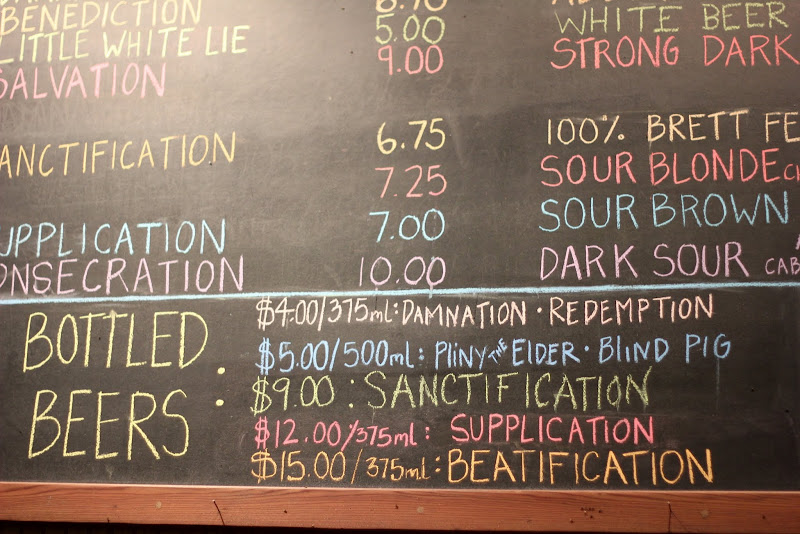 BENEDICTION
LITTLE WHITE LIE 5.00 WHITE BEER
SALVATION 9.00 STRONG DARK
ANCTIFICATION 6.75 100% BRETT FE
7.25 SOUR BLONDE
UPPLICATION 7.00 SOUR BROWN
ONSECRATION 10.00 DARK SOUR CAB
BOTTLED BEERS:
$4.00/375ml: DAMNATION · REDEMPTION
$5.00/500ml: PliNY THE ElDER · BliND PIG
$9.00: SANCTIFICATION
$12.00/375ml: SUPPLICATION
$15.00/375ml: BEATIFICATION